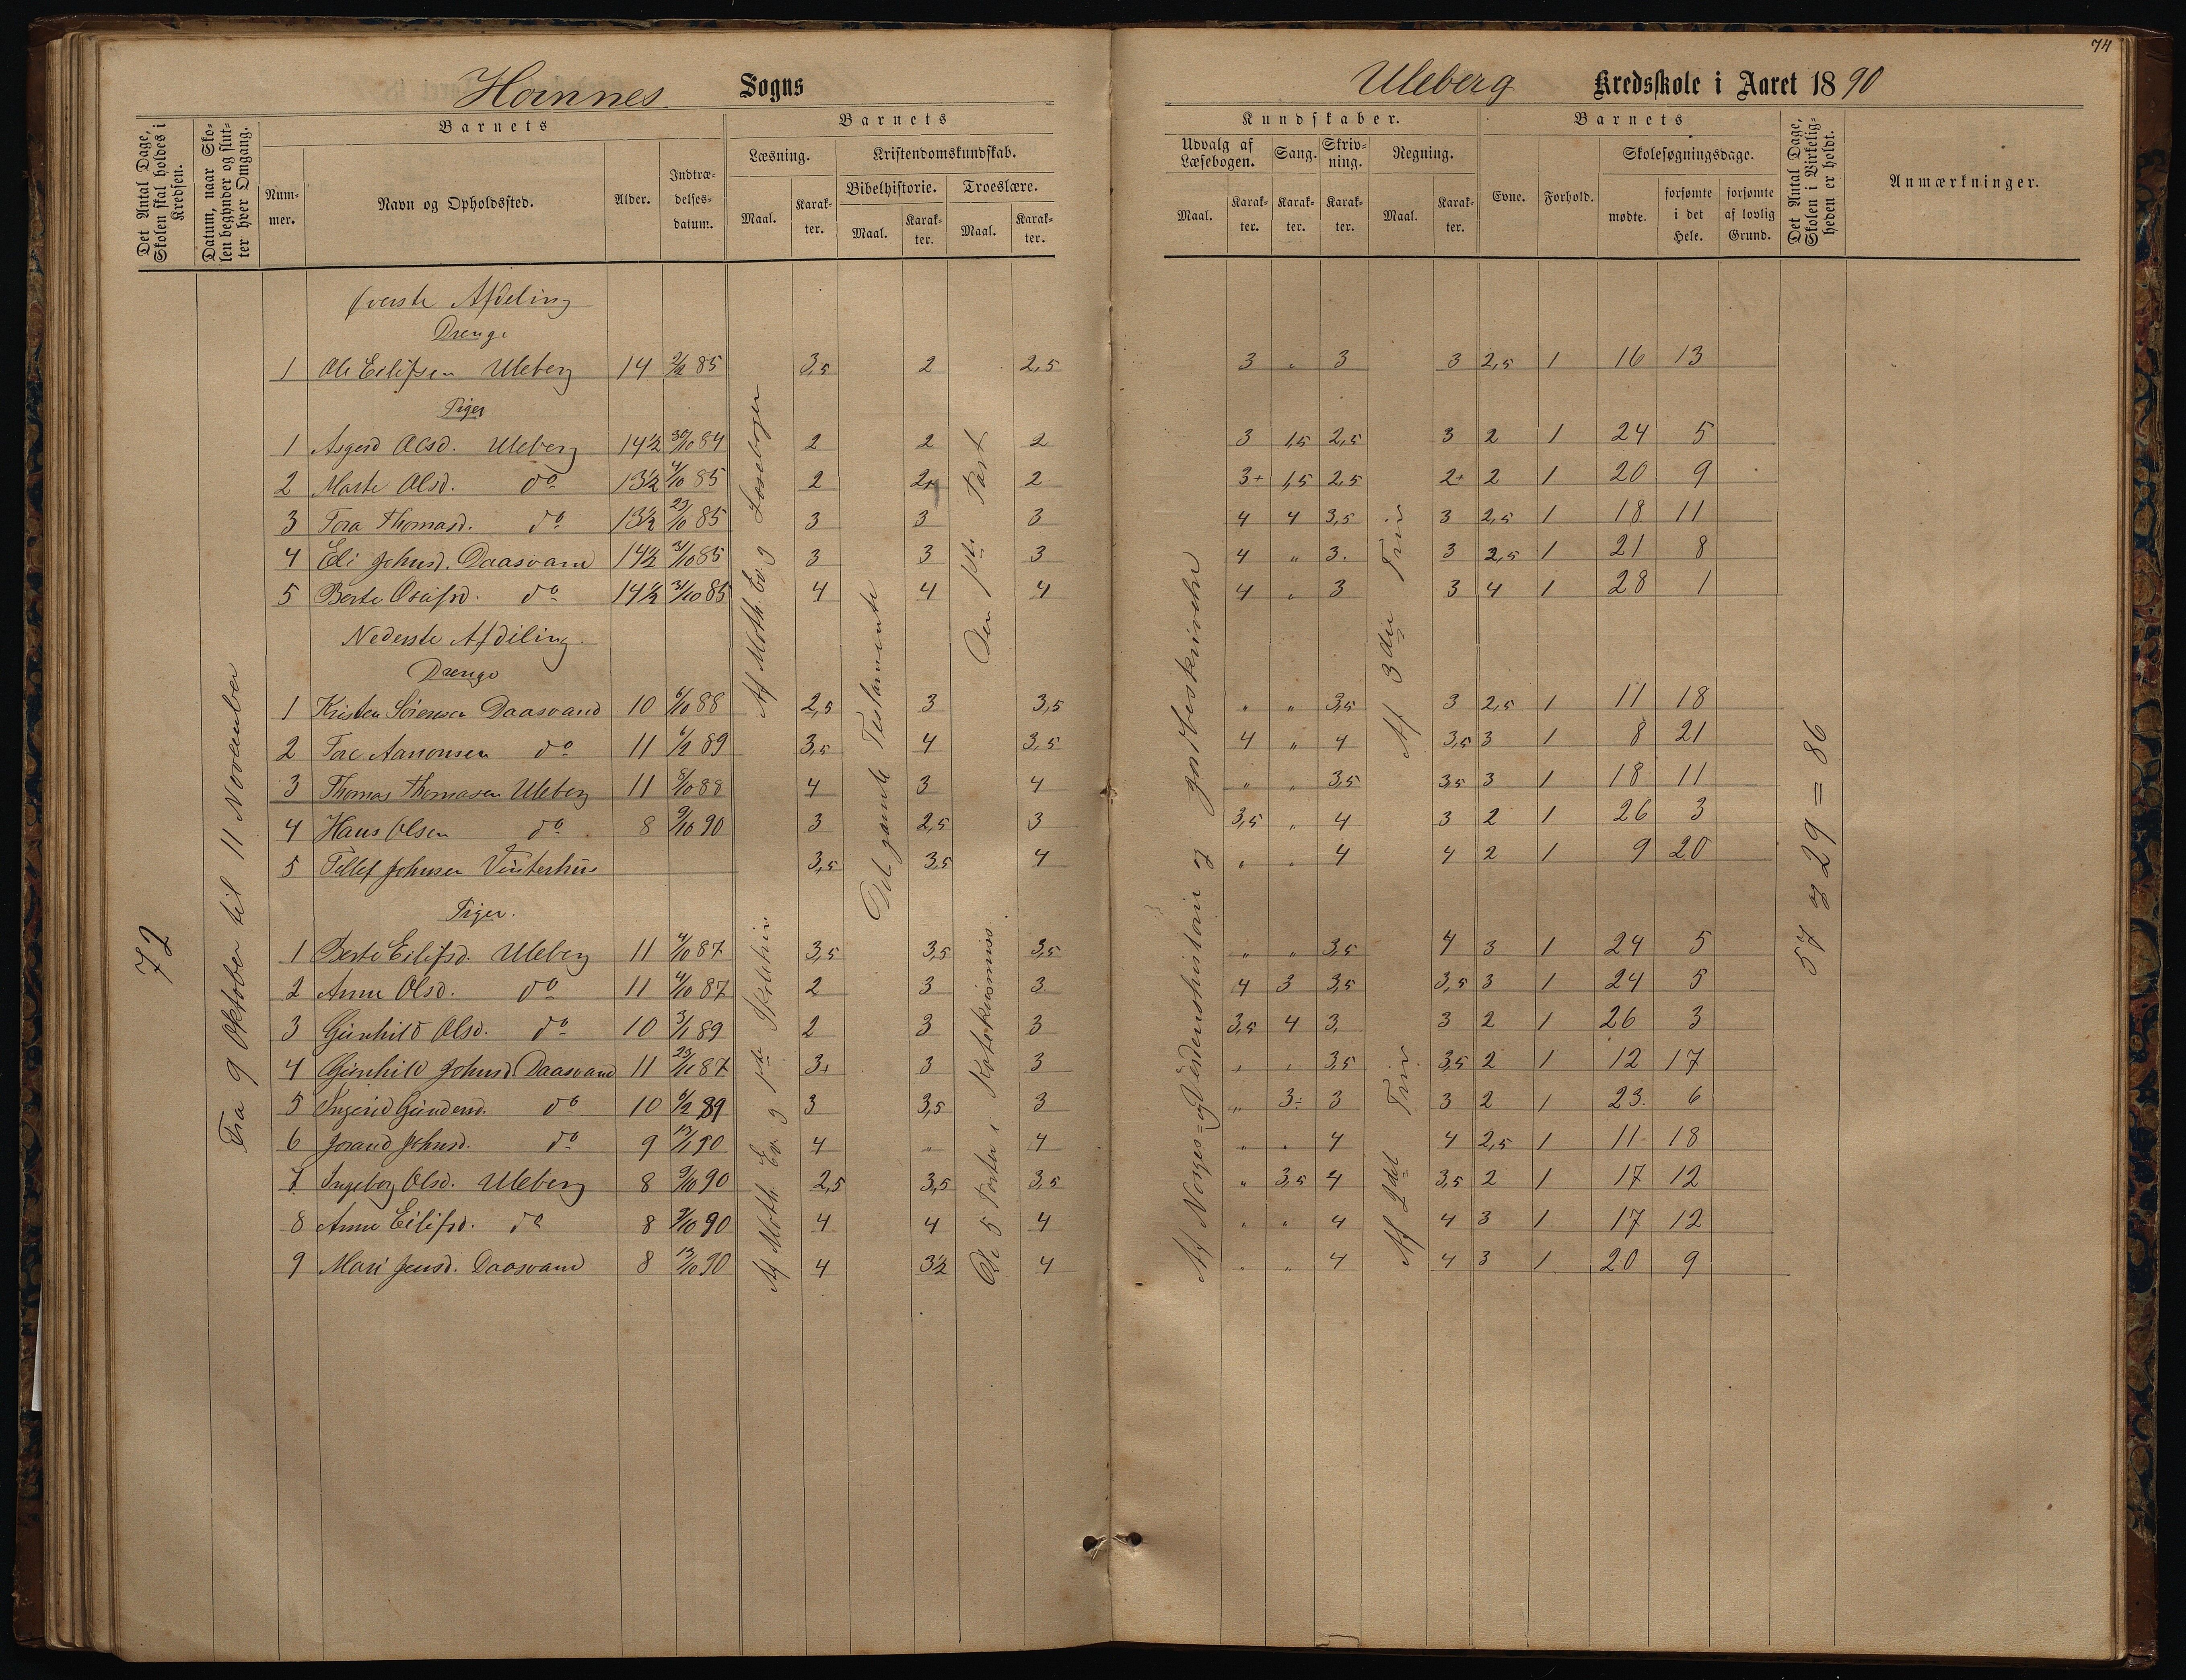 74
Hornnes Sogns
Uleberg Kredsskole i Aaret 1890
Det Antal Dage, Skolen skal holdes i Kredsen.
Datum, naar Skolen begynder og slutter hver Omgang.
Barnets
Nummer.
Navn og Opholdssted.
Alder.
Indtrædelsesdatum.
Barnets
Læsning.
Maal.
Karakter.
Kristendomskundskab.
Bibelhistorie.
Maal.
Karakter.
Troeslære.
Maal.
Karakter.
Kundskaber.
Udvalg af Læsebogen.
Maal.
Karakter.
Sang.
Karakter.
Skrivning.
Karakter.
Regning.
Maal.
Karakter.
Barnets
Evne.
Forhold.
Skolesøgningsdage.
mødte.
forsømte i det Hele.
forsømte af lovlig Grund.
Det Antal Dage, Skolen i Virkeligheden er holdt.
Anmærkninger.
72
Fra 9 Oktober til 11 November
Øverste Afdeling
Drenge
1 Ole Eilifsen Uleberg 14 85 3,5 2 2,5 3 " 3 3 2,5 1 16 13
Piger
1 Asgerd Olsd. Uleberg 14½ 30/10 84 2 2 2 3 1,5 2,5 3 2 1 24 5
2 Marte Olsd. do 13½ 4/10 85 2 2+ 2 3+ 1,5 2,5 2+ 2 1 20 9
3 Tora Thomasd. do 13½ 23/10 85 3 3 3 4 4 3,5 3 2,5 1 18 11
4 Eli Johnsd. Daasvand 14½ 31/10 85 3 3 3 4 " 3. 3 2,5 1 21 8
5 Berte Osufsd. do 14½ 31/10 85 4 4 4 4 " 3 3 4 1 28 1
Nederste Afdeling.
Drenge
1 Kristen Sørensen Daasvand 10 6/10 88 2,5 3 3,5 " " 3,5 3 2,5 1 11 18
2 Tore Aanonsen do 11 6/2 89 3,5 4 3,5 4 " 4 3,5 3 1 8 21
3 Thomas Thomasen Uleberg 11 8/10 88 4 3 4 " " 3,5 3,5 3 1 18 11
4 Hans Olsen do 8 9/10 90 3 2,5 3 3,5 " 4 3 2 1 26 3
5 Tellef Johnsen Vinterhus 3,5 3,5 4 " " 4 4 2 1 9 20
Piger.
1 Berte Eilifsd. Uleberg 11 4/10 87 3,5 3,5 3,5 " " 3,5 4 3 1 24 5
2 Anne Olsd. do 11 4/10 87 2 3 3 4 3 3,5 3,5 3 1 24 5
3 Gunhild Olsd. do 10 3/1 89 2 3 3 3,5 4 3. 3 2 1 26 3
4 Gunhild Johnsd. Daasvand 11 87 3+ 3 3 " " 3,5 3,5 2 1 12 17
5 Ingerid Gundersd. do 10 6/2 89 3 3,5 3 " 3÷ 3 3 2 1 23. 6
6 Jorand Johnsd. do 9 13/1 90 4 " 4 " " 4 4 2,5 1 11 18
7 Ingeborg Olsd. Uleberg 8 9/10 90 2,5 3,5 3,5 " 3,5 4 3,5 2 1 17 12
8 Anne Eilifsd. do 8 9/10 90 4 4 4 " " 4 4 3 1 17 12
9 Mari Jensd. Daasvand 8 13/10 90 4 3½ 4 " " 4 4 3 1 20 9
Af Moth. Ev. og Læsebogen
Af Moth. Ev. og 1ste
Det gamle Testamente
Den 1ste Part
De 5 Parter i Katekismus
Af Norges- og Verdenshistorie og Jordbeskrivelse
Af 3die Trin
Af 2det Trin
57 og 29 = 86